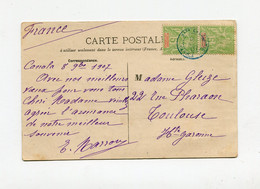 France
CARTE POSTALE
Correspondance
Canala 8 9bre 1907
Avec nos meilleurs
vœux pour vous tous
Chère Madame veuillez
agréer l'assurance
de notre meilleur
souvenir
E. Marroy
Madame Gleize
22 Rue Pharaon
Toulouse
Hte Garonne